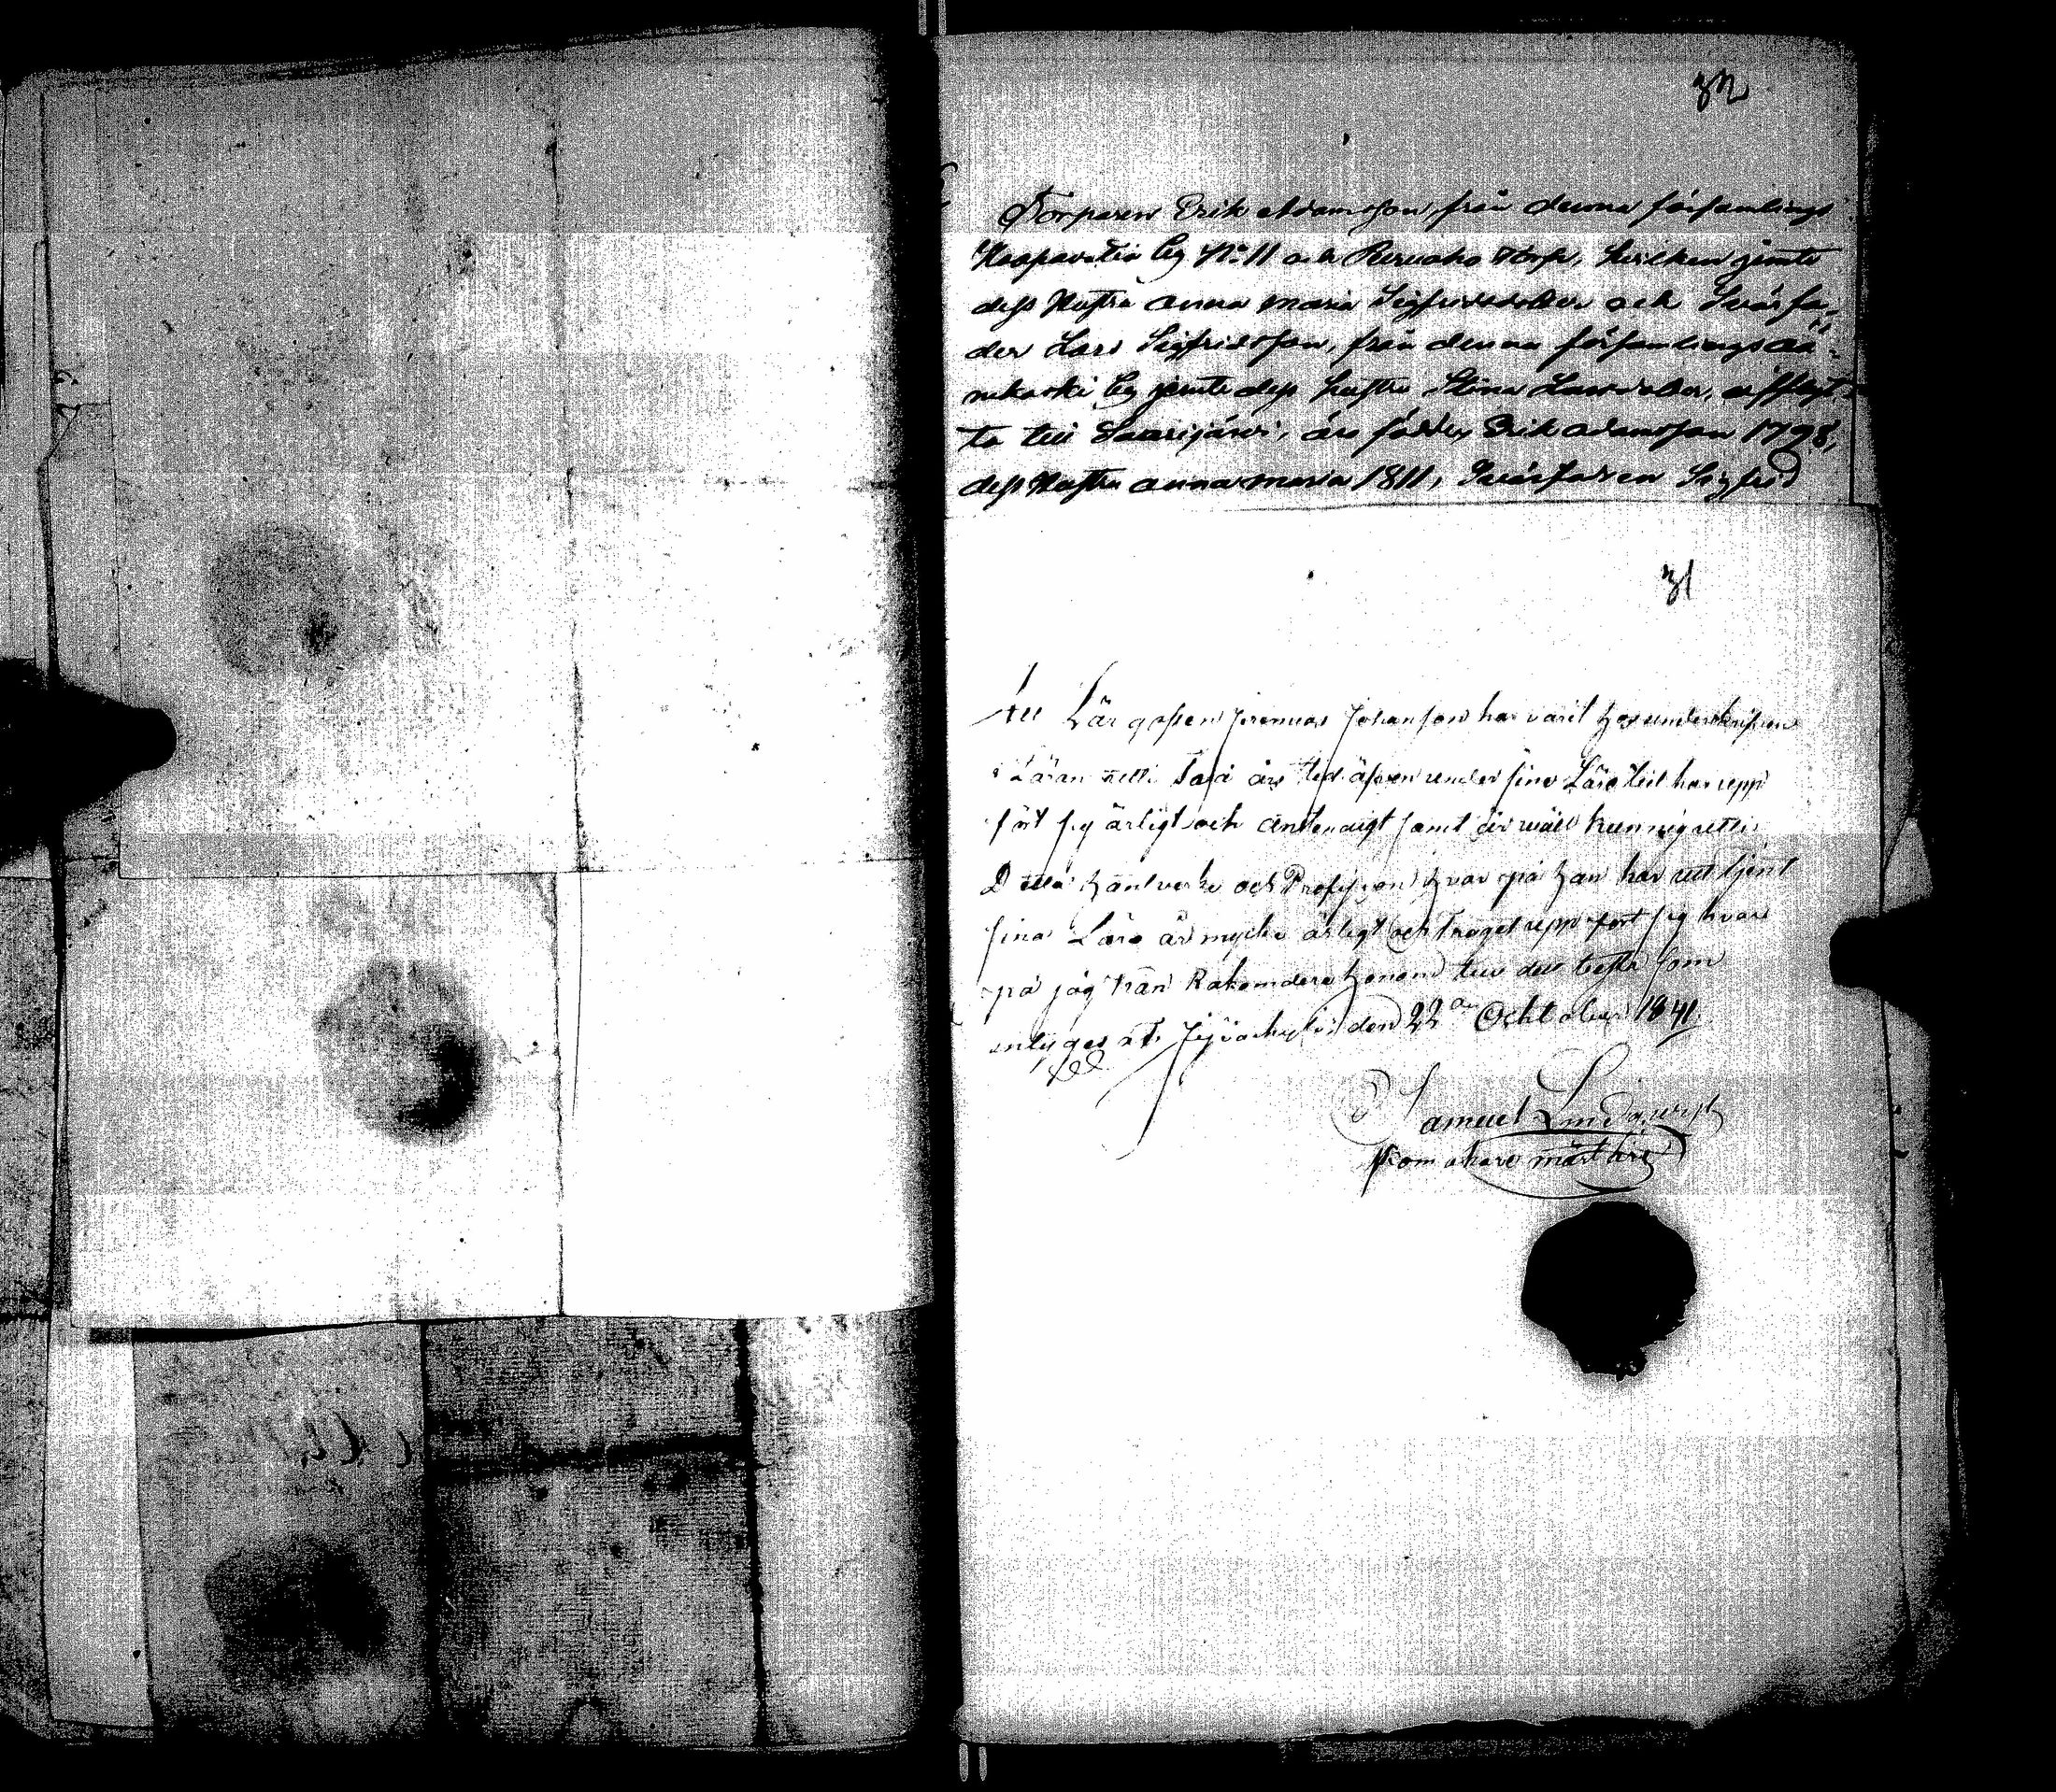 32
Torparen Erik Adamsson, från denna församlings
by No 11 och Torp, hvilken jemte
dess Hustru Anna Maria Sigfridsdotter och Svärfa-
der Lars Sigfridsson, från denna församlings Ää-
nekoski by jemte dess hustru Stina Larsdotter, afflyt-
ta till Saarijärvi, äro födde, Erik Adamsson 1798,
dess Hustru Anna Maria 1811, Svärfadren Sigfrid
31
Att Lärgossen Johansson har varit hos underskrifven
i Läran uti två års tid äfven under sine Läro tid har upp
fört sig ärligt och anstendigt samt är wäll kunnig utti
Detta handverke och Profession hvar på han har uttjent
sina Läro år mycke ärligt och troget upp fört sig hvar
på jag kan Rakomdera honom till det besta som
intygas af Jyväskylä den 22 Ochtober 1841
Samuel Lindqwist